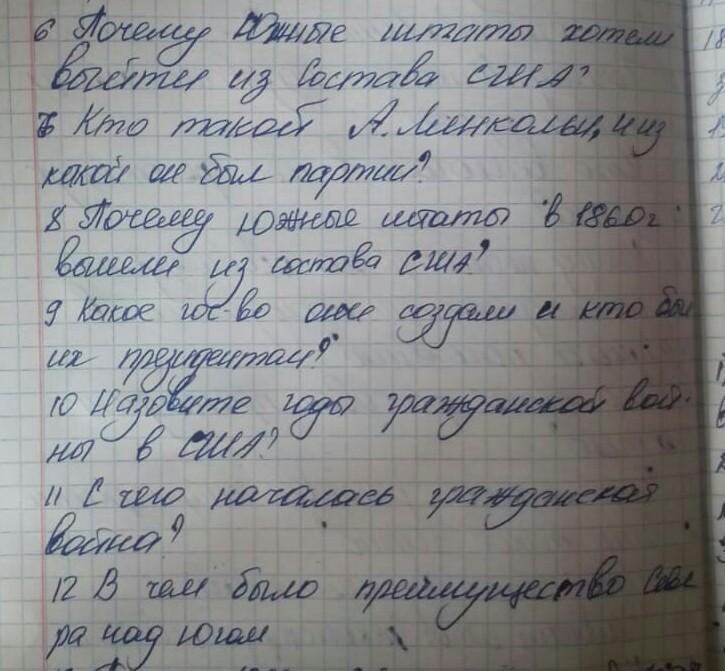 6 Почему Южные штаты хотели
выйти из состава США?
7 Кто такой А. Линкольн, и из
какой он был партии?
8 Почему Южные штаты в 1860г
вышли из состава США?
9 Какое гос-во они создали и кто был
их президентом?
10 Назовите годы гражданской вой-
ны в США?
11 С чего началась гражданская
война?
12 В чем было преимущество Севе
ра над Югом